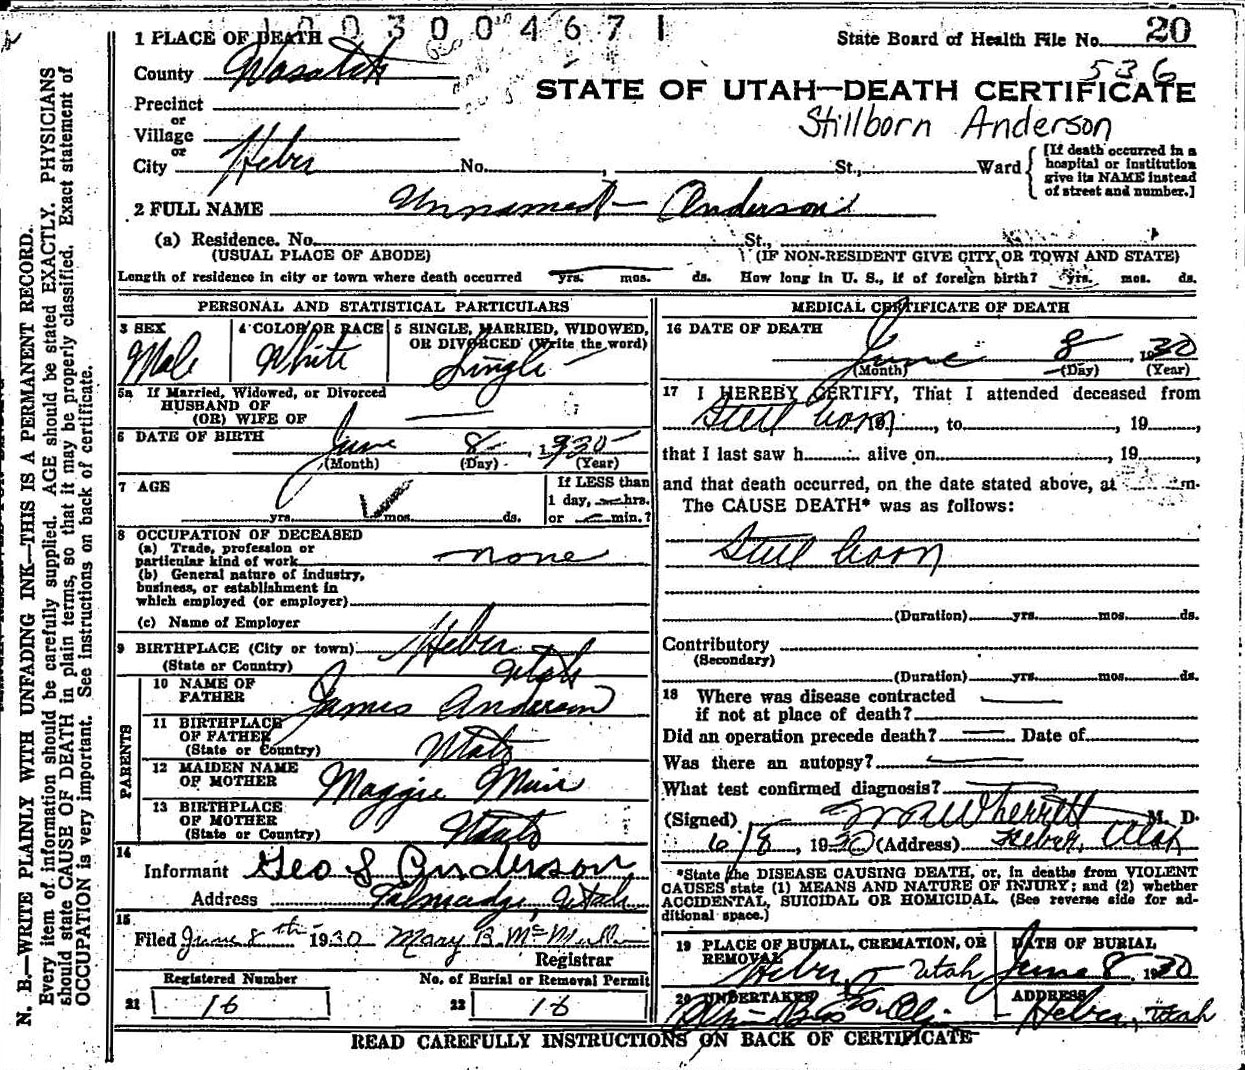 1003004671
State Board of Health File No. 20
536
1 PLACE OF DEATH
County Wasatch
STATE OF UTAH—DEATH CERTIFICATE
Precinct
or
Village
Stillborn Anderson
or
City Heber No. , St., Ward
[If death occurred in a hospital or institution give its NAME instead of street and number.]
2 FULL NAME Unnamed Anderson
(a) Residence. No. St.,
(USUAL PLACE OF ABODE) (IF NON-RESIDENT GIVE CITY OR TOWN AND STATE)
Length of residence in city or town where death occurred yrs. mos. ds. How long in U. S., if of foreign birth? yrs. mos. ds.
PERSONAL AND STATISTICAL PARTICULARS
3 SEX
Male
4 COLOR OR RACE
White
5 SINGLE, MARRIED, WIDOWED,
OR DIVORCED (Write the word)
Single
5a If Married, Widowed, or Divorced
HUSBAND OF
(OR) WIFE OF
6 DATE OF BIRTH
June 8 , 1930
(Month) (Day) (Year)
7 AGE
yrs. mos. ds.
If LESS than
1 day, hrs.
or min.?
8 OCCUPATION OF DECEASED
(a) Trade, profession or
particular kind of work none
(b) General nature of industry,
business, or establishment in
which employed (or employer)
(c) Name of Employer
9 BIRTHPLACE (City or town) Heber
(State or Country) Utah
PARENTS
10 NAME OF
FATHER James Anderson
11 BIRTHPLACE
OF FATHER
(State or Country) Utah
12 MAIDEN NAME
OF MOTHER Maggie Muir
13 BIRTHPLACE
OF MOTHER
(State or Country) Utah
14
Informant Geo S Anderson
Address Talmadge, Utah
15
Filed June 8th 1930 Mary B. McMullin
Registrar
Registered Number No. of Burial or Removal Permit
21 16 22 16
MEDICAL CERTIFICATE OF DEATH
16 DATE OF DEATH
June 8 , 1930
(Month) (Day) (Year)
17 I HEREBY CERTIFY, That I attended deceased from
Still born 19 , to , 19 ,
that I last saw h alive on , 19 ,
and that death occurred, on the date stated above, at m.
The CAUSE DEATH* was as follows:
Still born
(Duration) yrs. mos. ds.
Contributory
(Secondary)
(Duration) yrs. mos. ds.
18 Where was disease contracted
if not at place of death?
Did an operation precede death? Date of
Was there an autopsy?
What test confirmed diagnosis?
(Signed) Wherritt M. D.
6/8, 1930 (Address) Heber, Utah
*State the DISEASE CAUSING DEATH, or, in deaths from VIOLENT
CAUSES state (1) MEANS AND NATURE OF INJURY; and (2) whether
ACCIDENTAL, SUICIDAL OR HOMICIDAL. (See reverse side for ad-
ditional space.)
19 PLACE OF BURIAL, CREMATION, OR
REMOVAL
Heber, Utah
DATE OF BURIAL
June 8 1930
20 UNDERTAKER
ADDRESS
Heber, Utah
READ CAREFULLY INSTRUCTIONS ON BACK OF CERTIFICATE
N. B.—WRITE PLAINLY WITH UNFADING INK—THIS IS A PERMANENT RECORD.
Every item of information should be carefully supplied. AGE should be stated EXACTLY. PHYSICIANS
should state CAUSE OF DEATH in plain terms, so that it may be properly classified. Exact statement of
OCCUPATION is very important. See instructions on back of certificate.